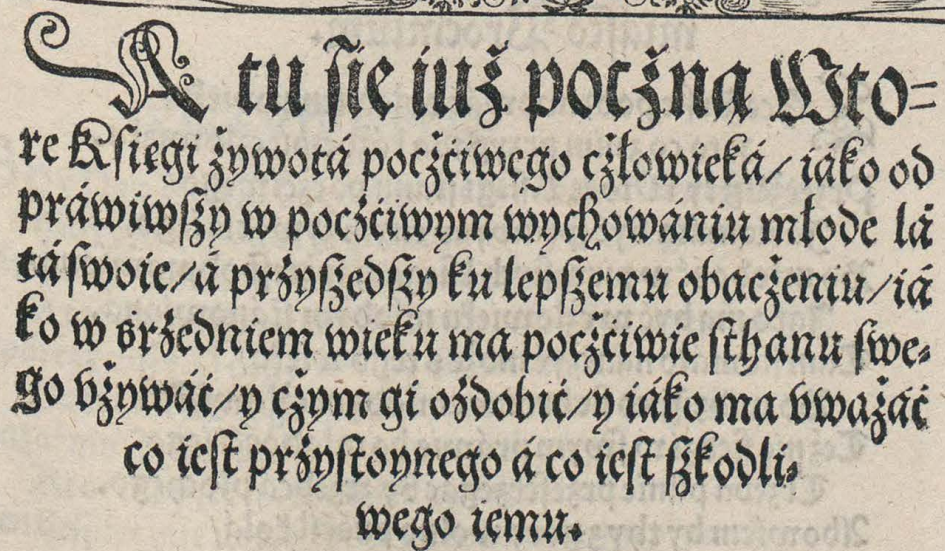 A tu ſie iuż poczżną Wto⸗
re Kſięgi żywotá poczżciwego cżłowieká/ iáko od
práwiwſży w poczżciwym wychowániu młode lá
tá ſwoie/ á przyſżedſży ku lepſżemu obacżeniu/ iá
ko w srżedniem wieku ma poczżciwie ſthanu ſwe⸗
go vżywáć/ y cżym gi ozdobić/ y iáko ma vważáć
co ieſt przyſtoynego a co ieſt ſżkodli⸗
wego iemu.